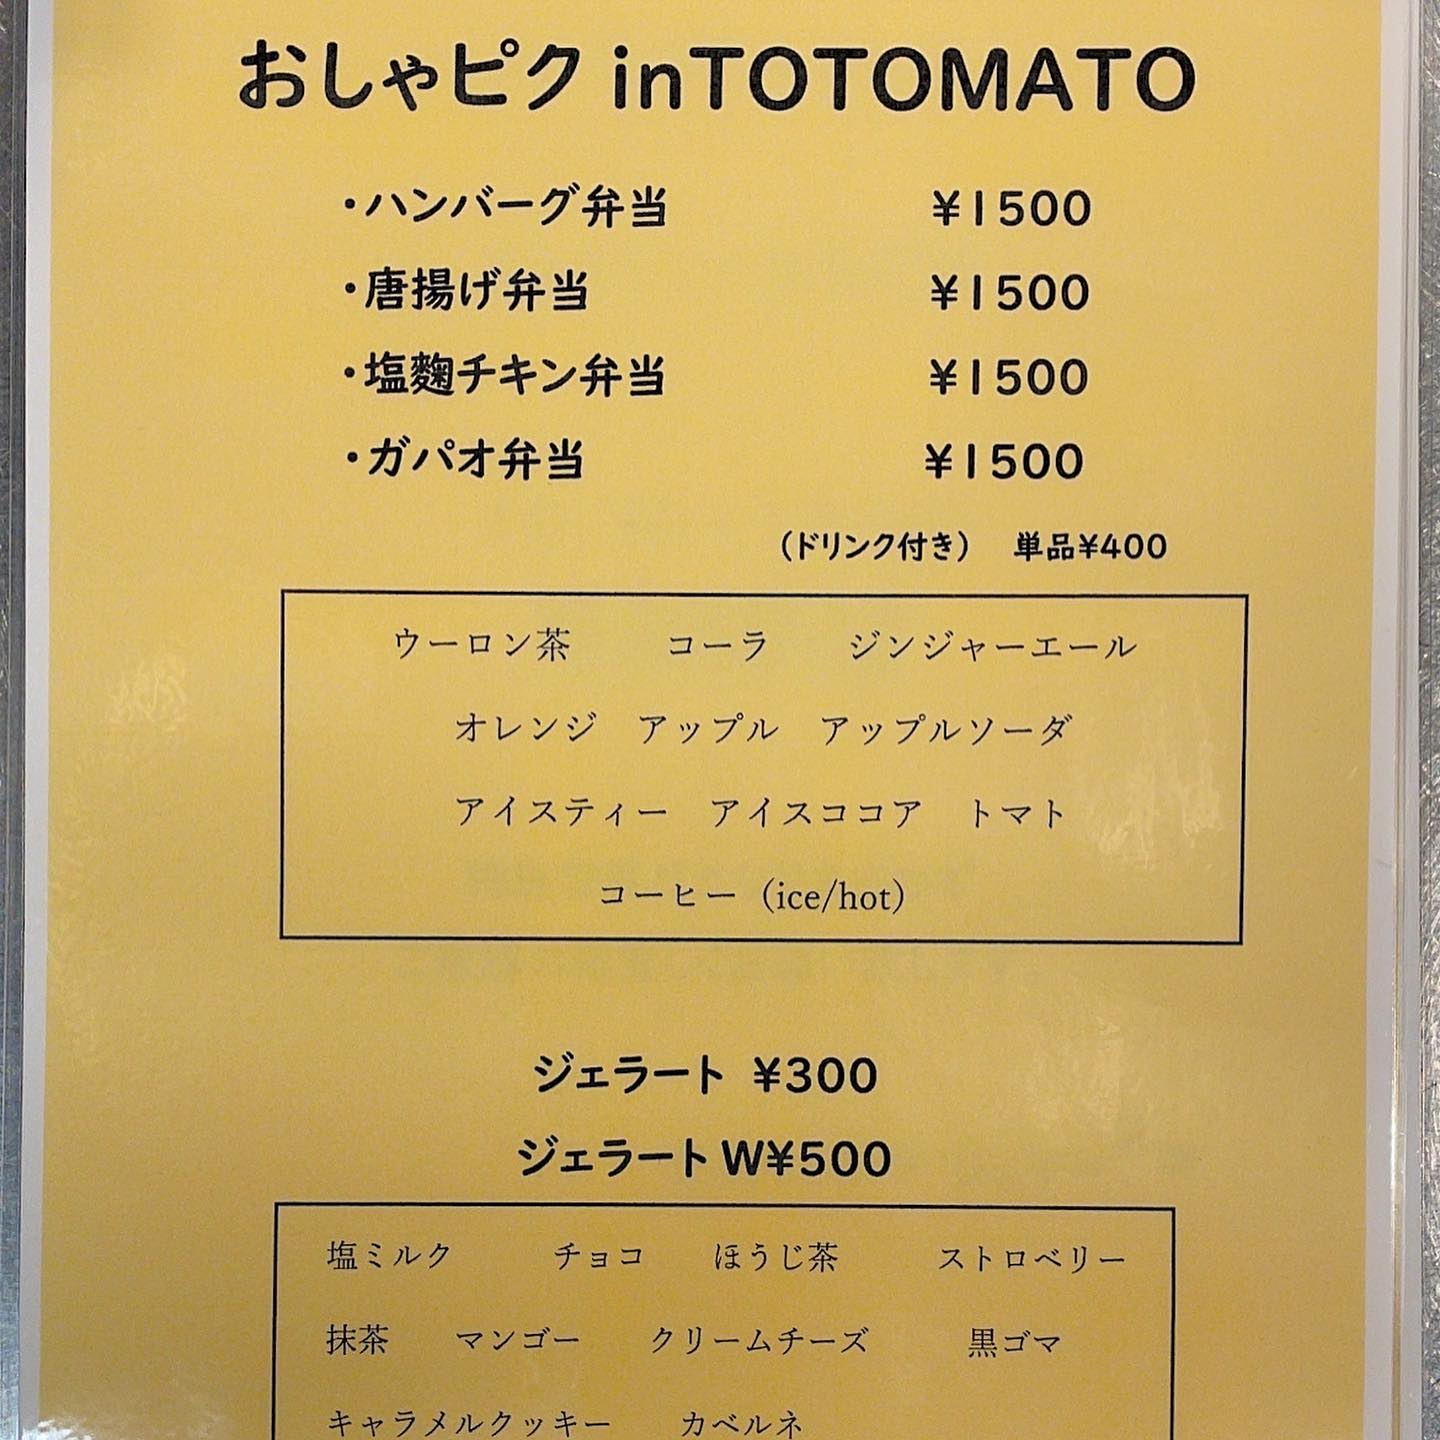 おしゃピク inTOTOMATO
・ハンバーグ弁当 ¥1500
・唐揚げ弁当 ¥1500
・塩麴チキン弁当 ¥1500
・ガパオ弁当 ¥1500
（ドリンク付き） 単品¥400
ウーロン茶 コーラ ジンジャーエール
オレンジ アップル アップルソーダ
アイスティー アイスココア トマト
コーヒー（ice/hot）
ジェラート ¥300
ジェラートW¥500
塩ミルク チョコ ほうじ茶 ストロベリー
抹茶 マンゴー クリームチーズ 黒ゴマ
キャラメルクッキー カベルネ